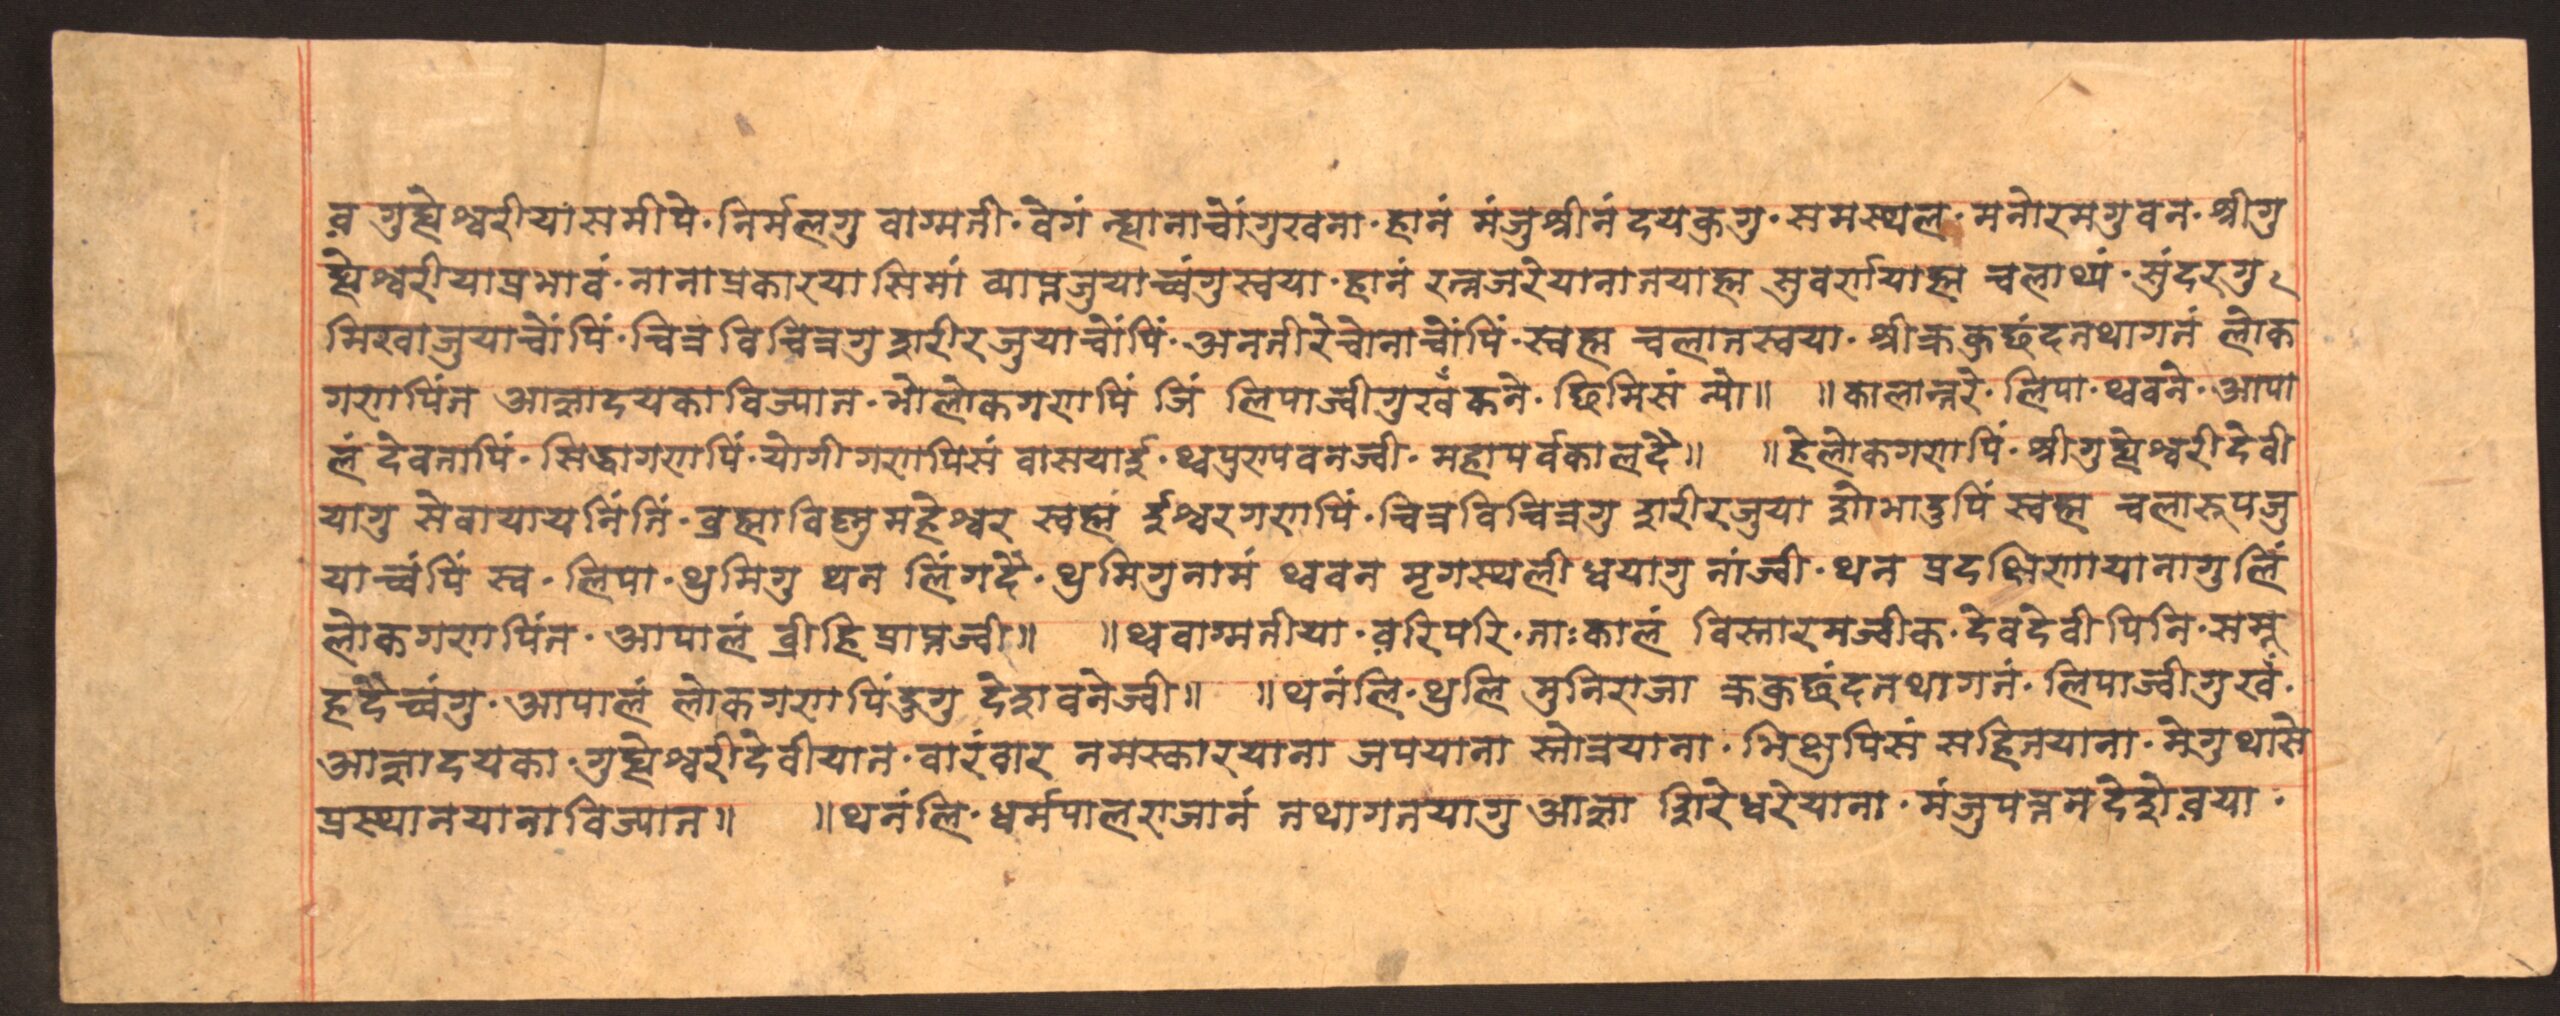 व़ गुह्येश्वरीया समीपे· निर्मलगु वाग्मती· वेगं न्ह्यानाचोंगु खना· हानं मंजुश्रीनं दयकुगु· समस्थल· मनोरमगु वन· श्रीगु
ह्येश्वरीया प्रभावं· नाना प्रकारया सिमां व्याप्तजुयाच्वंगु स्वया· हानं रत्नजरेयाना तयाह्म सुवर्णयाह्म चलाथ्यं· सुंदरगु
मिखाजुयाचोंपिं· चित्रविचित्रगु शरीरजुयाचोंपिं· अनतीरे चोनाचोंपिं· स्वह्म चलातस्वया· श्रीक्रकुछंदतथागतं लोक
गणपिंत आज्ञादयका विज्यात· भो लोकगणपिं जिं लिपाज्वीगु खँ कने· छिमिसं न्यो॥ ॥कालान्तरे· लिपा· थ्ववने· आपा
लं देवतापिं· सिद्धागणपिं· योगीगणपिसं वासयाई· थ्वपुण्यवनज्वी· महापर्वकालदै॥ ॥हे लोकगणपिं· श्रीगुह्येश्वरीदेवी
यागु सेवायायनिंतिं· ब्रह्मा विष्णु महेश्वर स्वह्मं ईश्वरगणपिं· चित्रविचित्रगु शरीरजुया शोभादुपिं स्वह्म चलारूपजु
याच्वंपिं स्व· लिपा· थुमिगु थन लिंगदै· थुमिगुनामं थ्ववन मृगस्थली धयागु नांज्वी· थन प्रदक्षिणायानागुलिं
लोकगणपिंत· आपालं व्रीहि प्राप्तज्वी॥ ॥थ्व वाग्मतीया· व़रिपरि· ताःकालं विस्तारमज्वीक· देवदेवीपिनि· समू
हदैच्वंगु· आपालं लोकगणपिंदुगु देशवनेज्वी॥ ॥थनंलि· थुलि मुनिराजा क्रकुछंदतथागतं· लिपाज्वीगु खँ·
आज्ञादयका· गुह्येश्वरीदेवीयात· वारंवार नमस्कारयाना जपयाना स्तोत्रयाना· भिक्षुपिसं सहितयाना· मेगुथासे
प्रस्थानयाना विज्यात॥ ॥थनंलि· धर्मपालराजानं तथागतयागु आज्ञा शिरेधरेयाना· मंजुपत्तन देशे व़या·